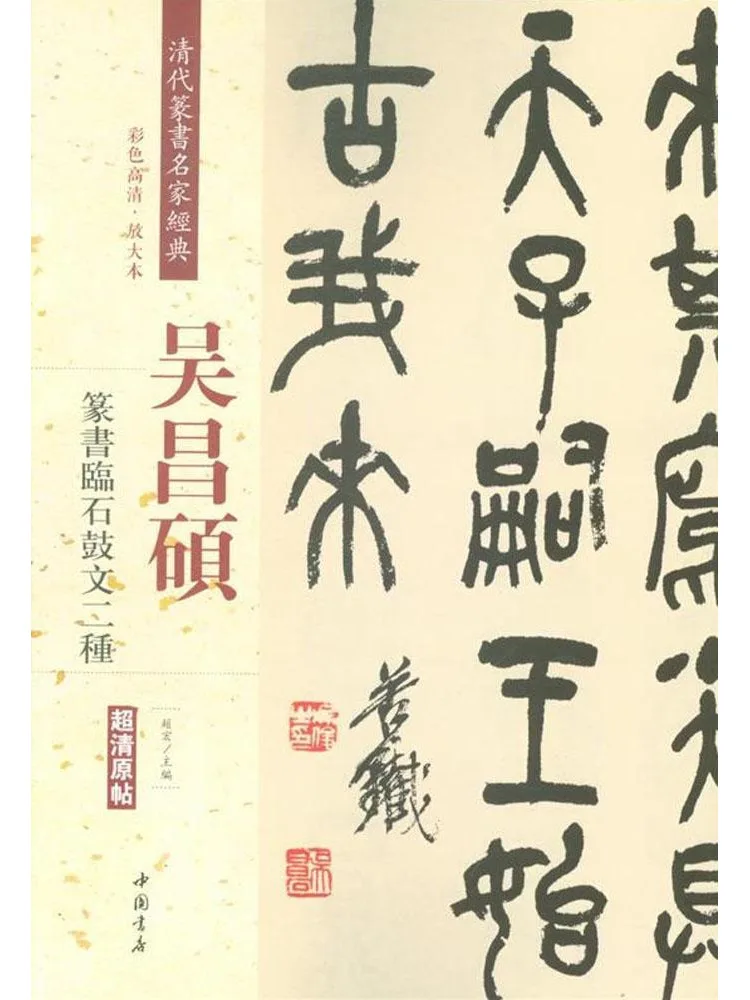 清代篆書名家經典
彩色高清·放大本
吴昌碩
篆書臨石鼓文二種
趙宏/主編
超清原帖
中国書店
天子嗣王始
古我來